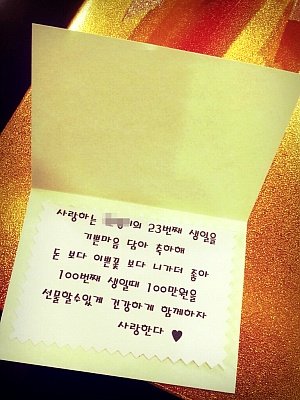 사랑하는 의 23번째 생일을
기쁜마음 담아 축하해
돈 보다 이쁜꽃 보다 니가더 좋아
100번째 생일때 100만원을
선물할수있게 건강하게 함께하자
사랑한다 ♥